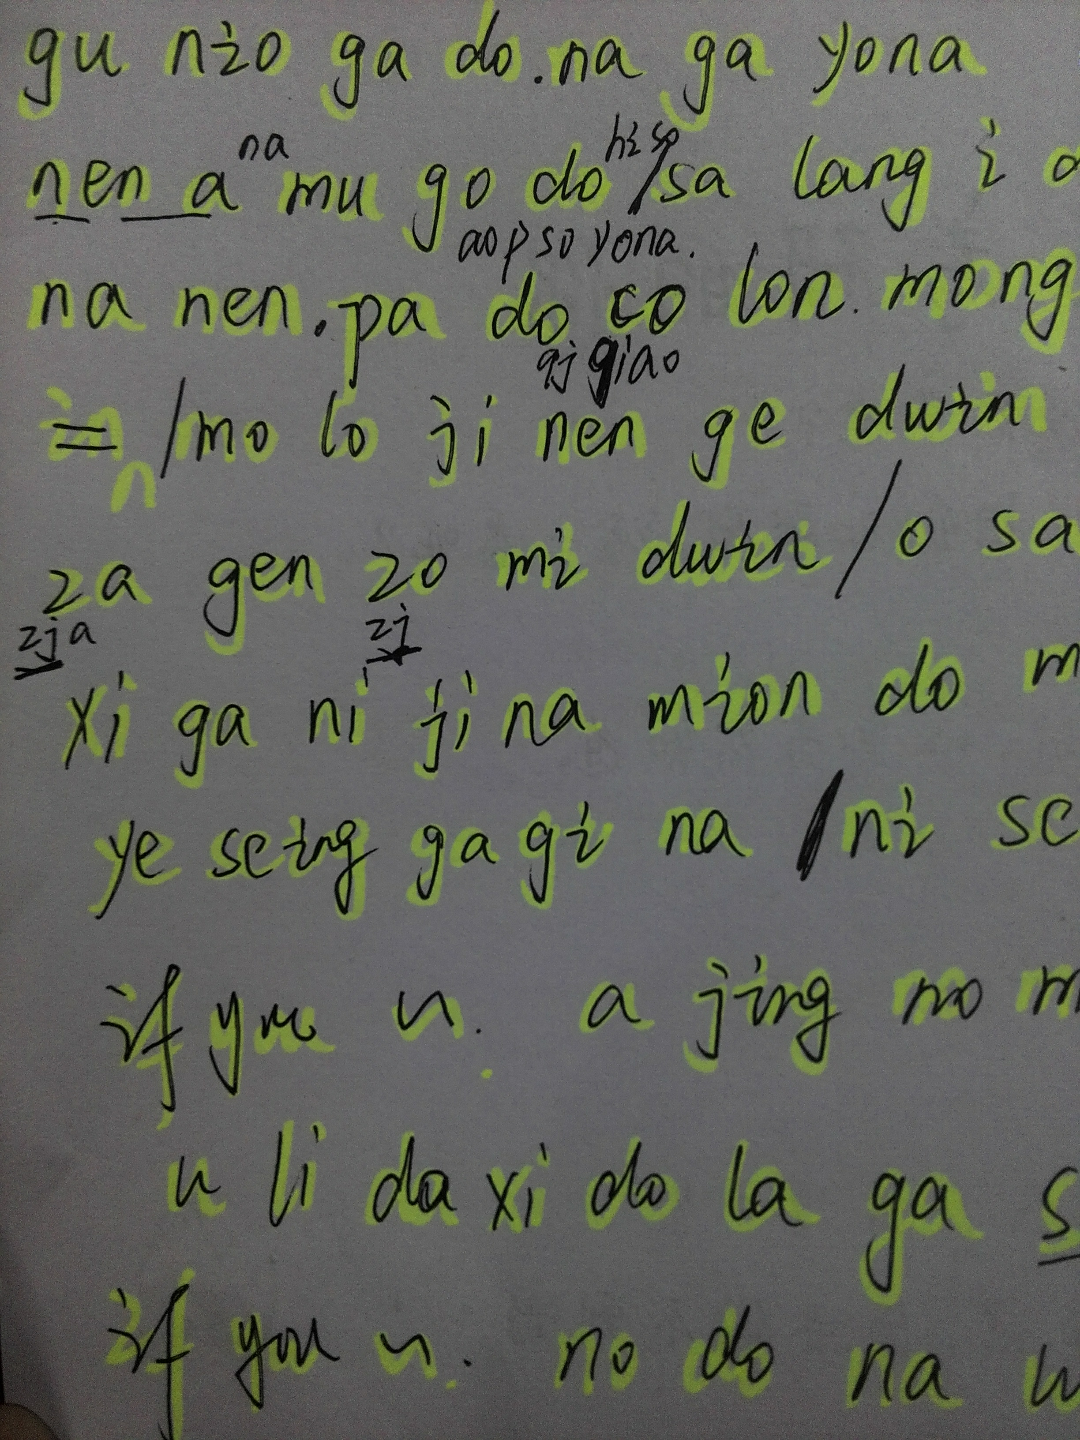 gu nio ga do.na ga yona
na hi so
nen a mu go do /sa lang i
aop so yona.
na nen.pa do co lon.mong
qj giao
in /mo lo ji nen ge dwin
n
za gen zo mi dwin /o sa
zja zj
xi ga ni ji na mion do m
ye seing ga gi na /ni se
if you u. a jing mo m
u li da xi do la ga s
if you u. no do na u